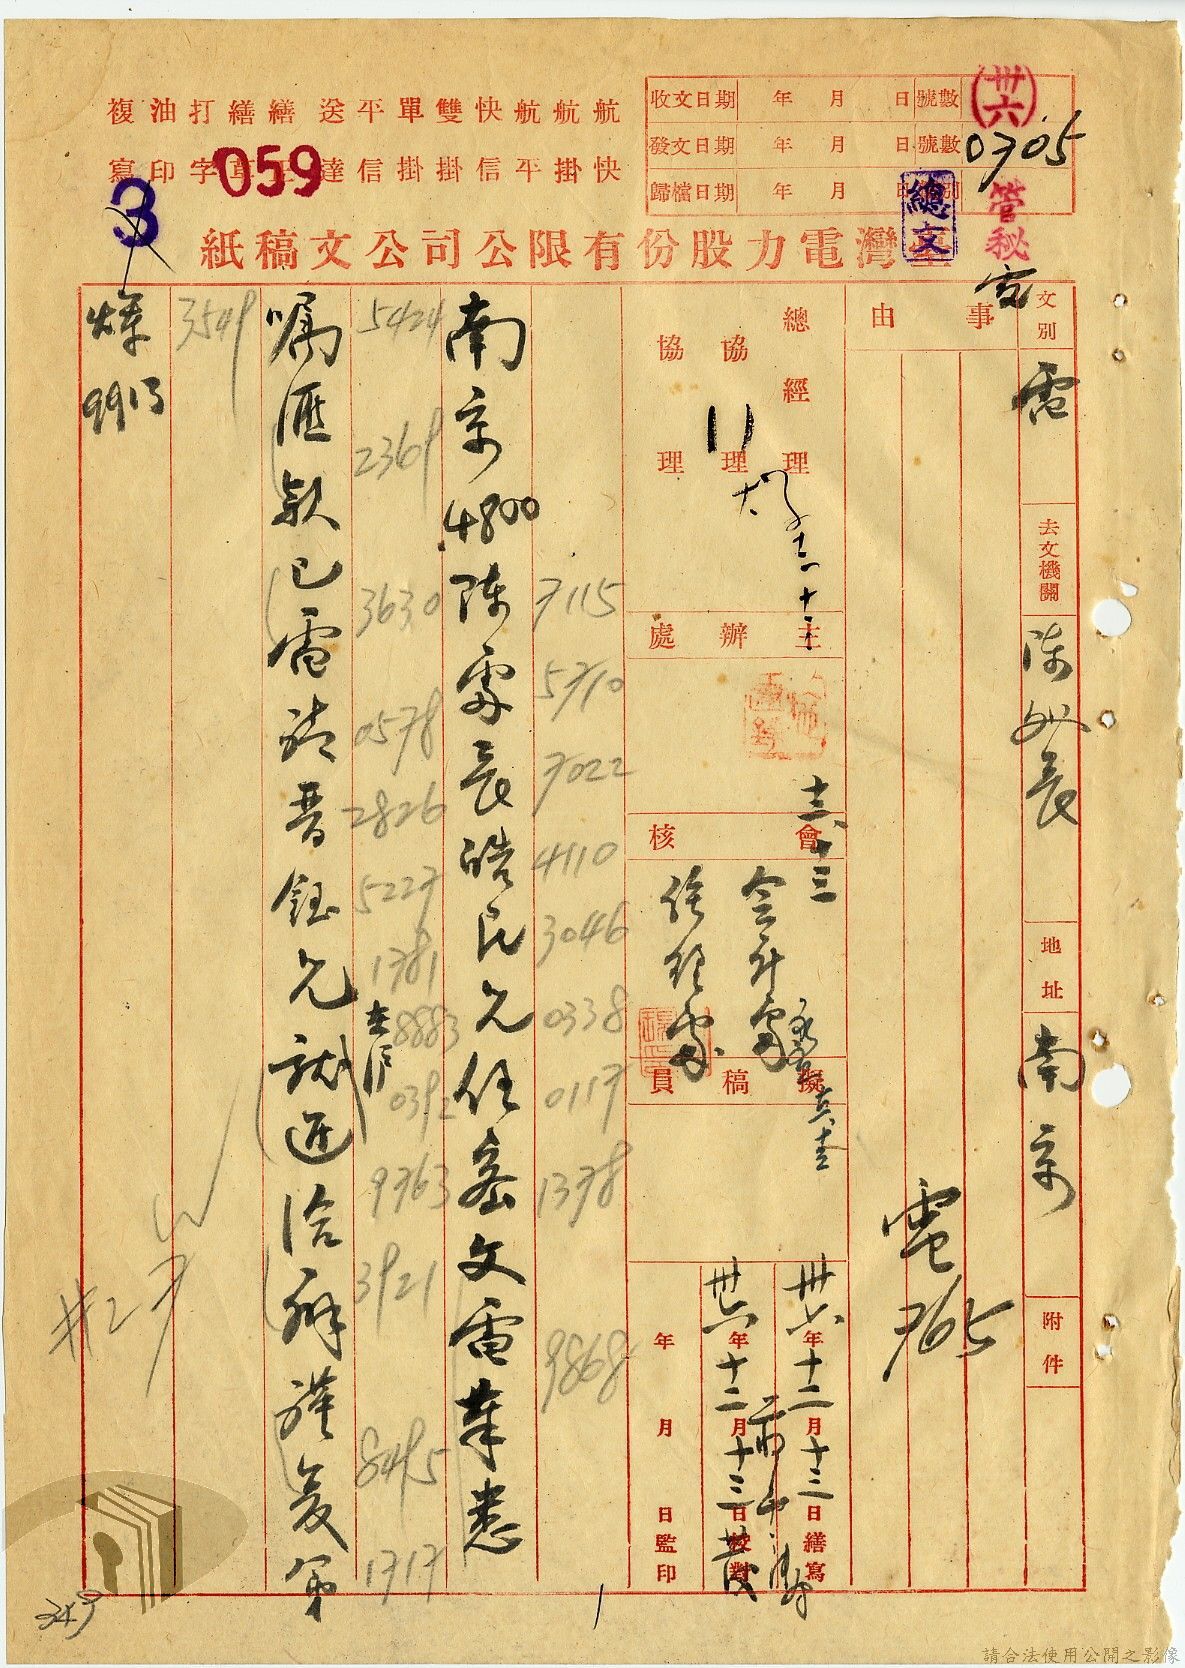 複寫 油印 打字 繕 繕 送達 平信 單掛 雙掛 快信 航平 航掛 航快
059
3
收文日期 年 月 日 號數
發文日期 年 月 日 號數
歸檔日期 年 月
(卅六)
0705
管秘
總文
臺灣電力股份有限公司公文稿紙
文別 電
去文機關 陳處長
地址 南京
附件
事由
電765
總經理
協理
協理
主辦處
十二、十三
會核
會計處
擬稿員
卅六年十二月十三日繕寫
卅六年十二月十三日校對
年 月 日監印
7115 5710 7022 4110 3046 0338 0117 1378 9868
南京4800陳處長皓民兄任密文電奉悉
5424 2369 3630 0578 2826 5227 1781 8883 0392 9763 3921 8495 1717
囑匯款已電請晋鈺兄就近洽辦謹复弟
在滬
3549
煇
#27
349
請合法使用公開之影像